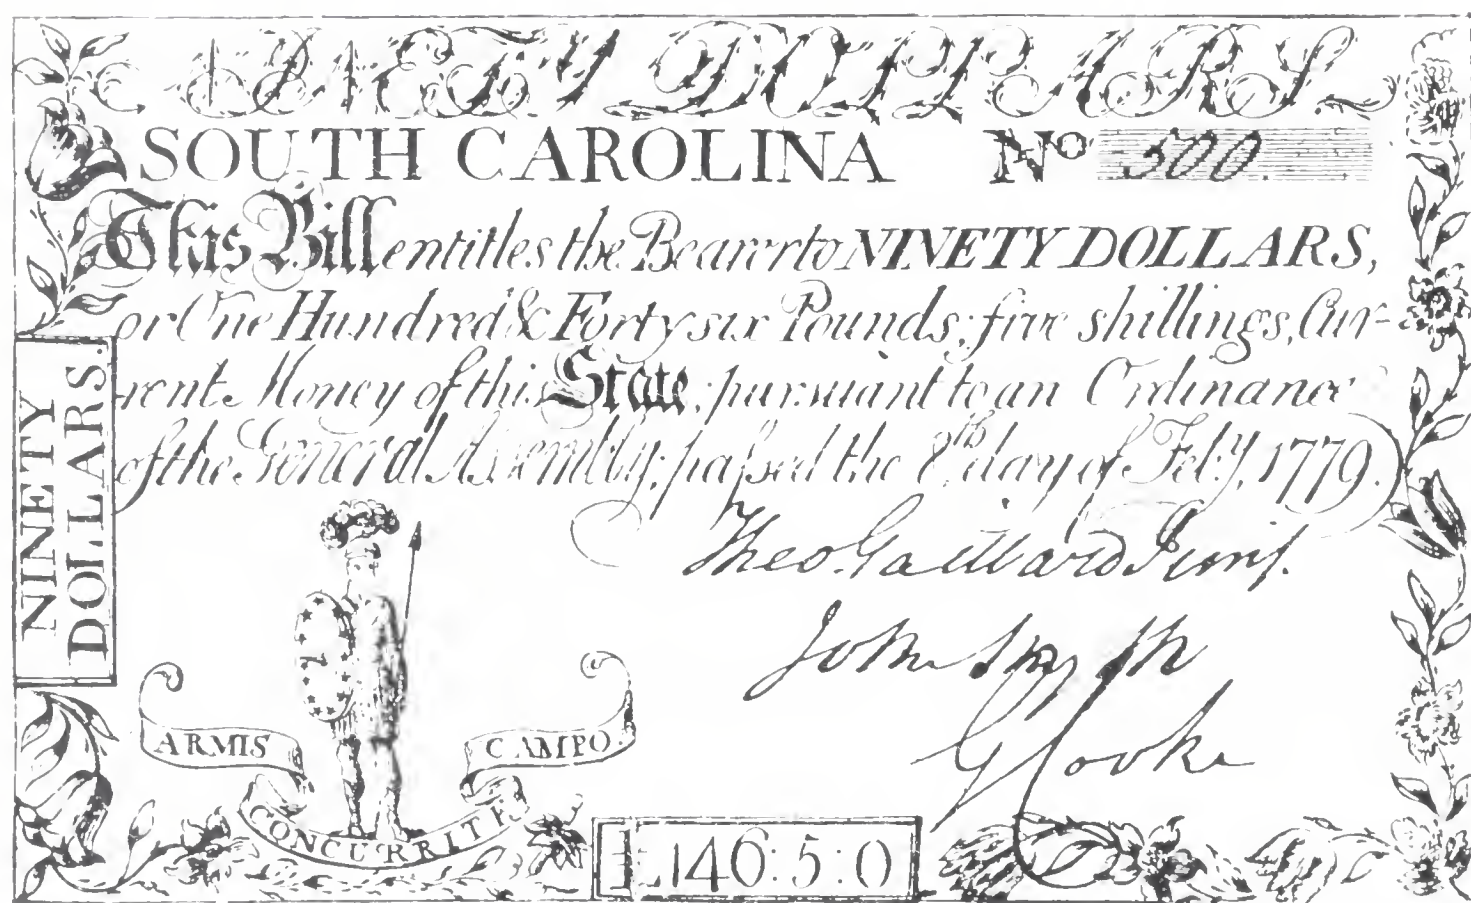 NINETY DOLLARS
SOUTH CAROLINA No 500.
This Bill entitles the Bearer to NINETY DOLLARS,
or One Hundred & Forty six Pounds, five shillings, Cur-
rent Money of this State; pursuant to an Ordinance
of the General Assembly; passed the 8th day of Feb:y, 1779.
NINETY
DOLLARS.
Theo. Gaillard Junr.
John Smyth
G Cooke
ARMIS
CONCURRITE
CAMPO
£146:5:0